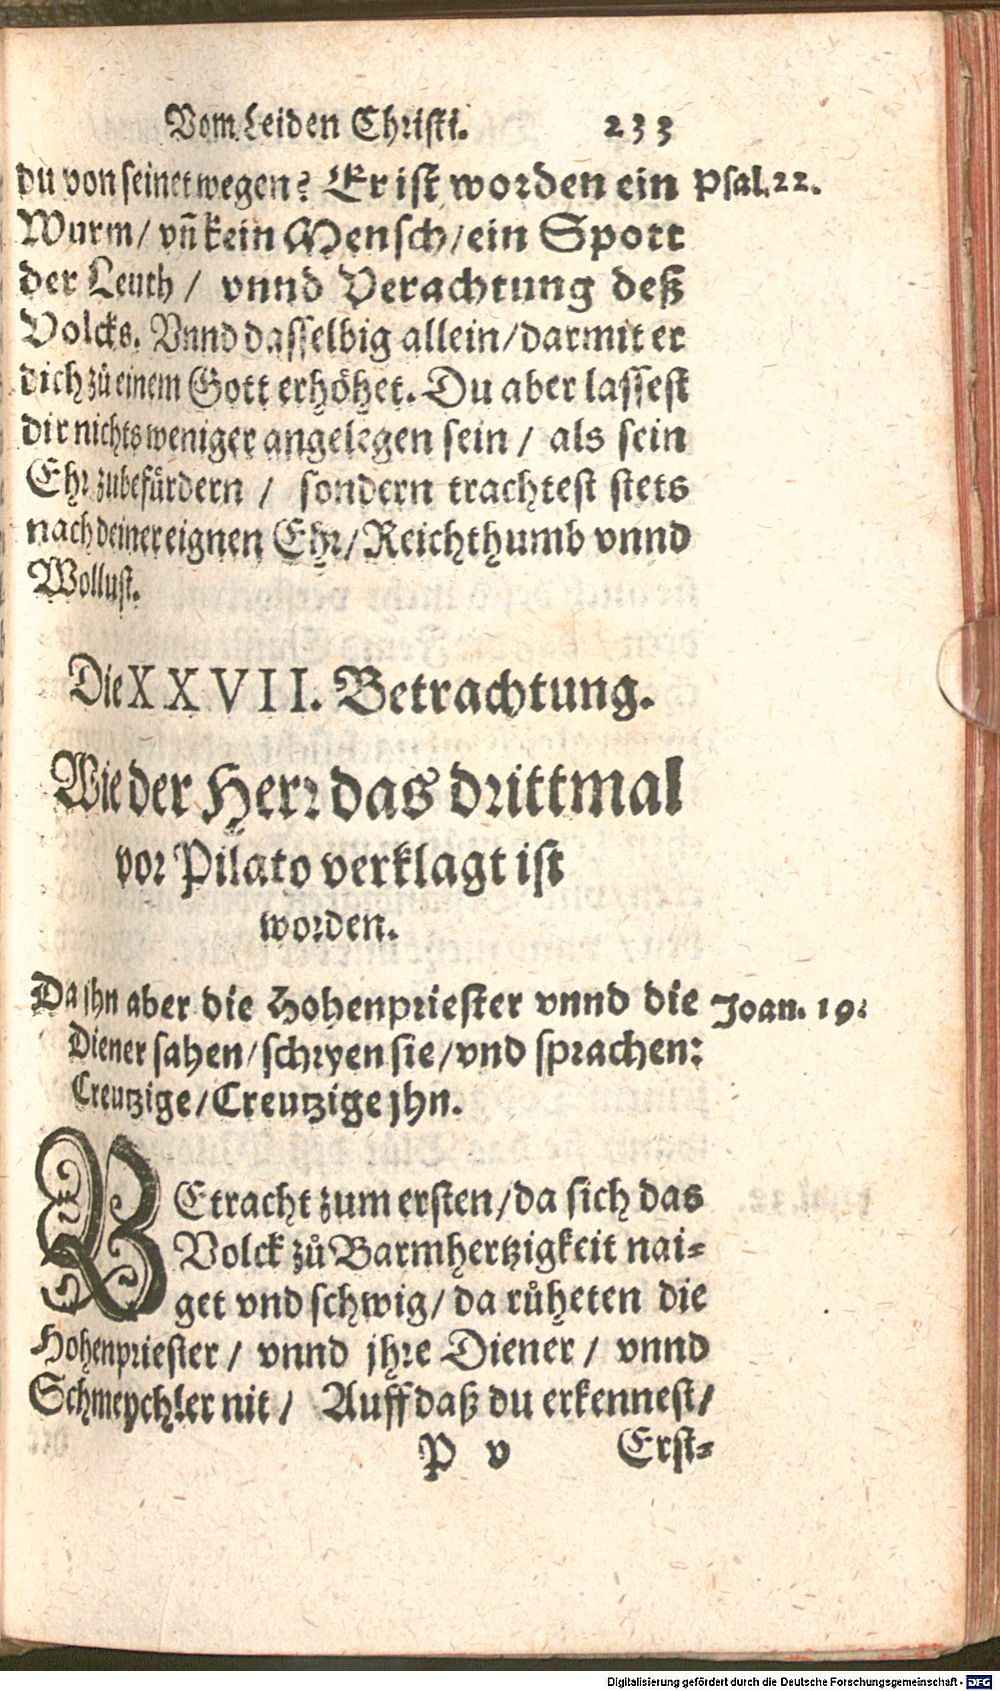 Vom Leiden Christi. 233
du von seinet wegen? Er ist worden ein Psal. 22.
Wurm/ vñ kein Mensch/ ein Spott
der Leuth/ vnnd Verachtung deß
Volcks. Vnnd dasselbig allein/ darmit er
dich zů einem Gott erhöhet. Du aber lassest
dir nichts weniger angelegen sein/ als sein
Ehr zubefürdern/ sondern trachtest stets
nach deiner eignen Ehr/ Reichthumb vnnd
Wollust.
Die XXVII. Betrachtung.
Wie der Herr das drittmal
vor Pilato verklagt ist
worden.
Da jhn aber die Hohenpriester vnnd die Joan. 19.
Diener sahen/ schryen sie/ vnd sprachen:
Creutzige/ Creutzige jhn.
BEtracht zum ersten/ da sich das
Volck zů Barmhertzigkeit nai-
get vnd schwig/ da růheten die
Hohenpriester/ vnnd jhre Diener/ vnnd
Schmeychler nit/ Auff daß du erkennest/
P v Erst-
Digitalisierung gefördert durch die Deutsche Forschungsgemeinschaft - DFG